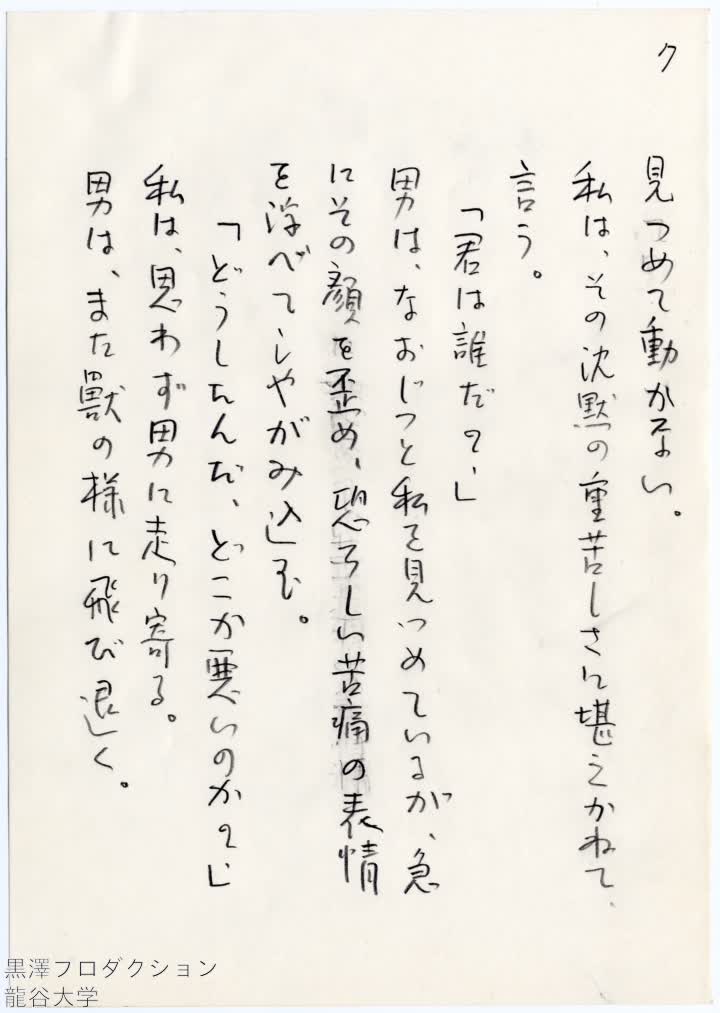 7
見つめて動かない。
私は、その沈黙の重苦しさに堪えかねて、
言う。
「君は誰だ?」
男は、なおじっと私を見つめているが、急
にその顔を歪め、恐ろしい苦痛の表情
を浮べてしゃがみ込む。
「どうしたんだ、どこか悪いのか?」
私は、思わず男に走り寄る。
男は、また獣の様に飛び退く。
黒澤プロダクション
龍谷大学